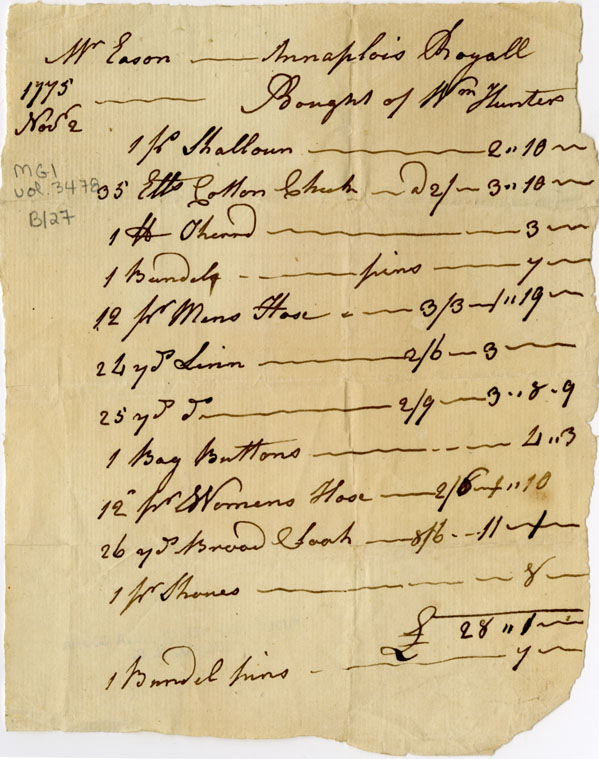 Mr Eason — Annaplois Royall
1775 — Bought of Wm Hunter
Novr 2
1 ps Shalloun — 2 " 10 —
MG1
vol. 3478
B/27
35 Ells Cotton Check — @ 2/ — 3 " 10 —
1 lb Thread — 3 —
1 Bundel — pins — 7 —
12 pr Mens Hose — 3/3 — 1 " 19 —
24 yds Linn — 2/6 — 3 —
25 yds Do — 2/9 — 3 " 8 " 9
1 Bag Buttons — 4 " 3
12 pr Womens Hose — 2/6 — 1 " 10
26 yds Broad Cloath — 8/6 — 11 " 1 —
1 pr Shoues — 8 —
£ 28 " 1 —
1 Bundel pins — 7 —